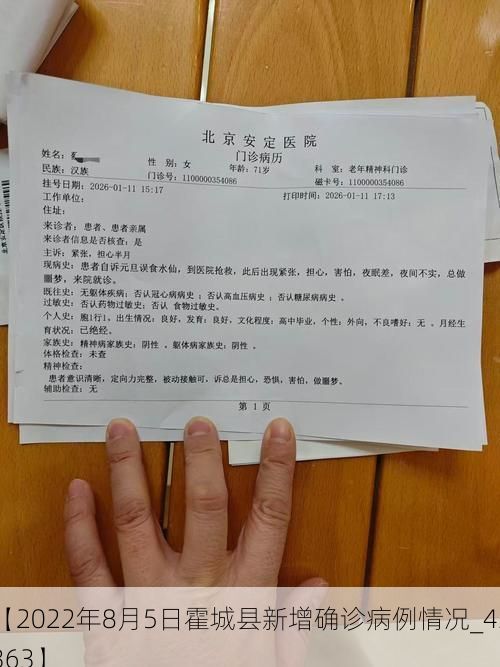 北京安定医院
门诊病历
姓名：
性 别：女
年龄：71岁
科 室：老年精神科门诊
民族：汉族
门诊号：1100000354086
磁卡号：1100000354086
挂号日期：2026-01-11 15:17
打印时间：2026-01-11 17:13
工作单位：
住址：
来诊者：患者、患者亲属
来诊者信息是否核查：是
主诉：紧张，担心半月
现病史：患者自诉元旦误食水仙，到医院抢救，此后出现紧张，担心，害怕，夜眠差，夜间不实，总做
噩梦，来院就诊。
既往史：无躯体疾病；否认冠心病病史 ；否认高血压病史 ；否认糖尿病病史 。
过敏史：否认药物过敏史；否认 食物过敏史。
个人史：胞1行1，出生情况：良好，发育：良好，文化程度：高中毕业，个性：外向，不良嗜好：无 。月经生
育状况：已绝经。
家族史：精神病家族史：阴性 。躯体病家族史：阴性 。
体格检查：未查
精神检查：
患者意识清晰，定向力完整，被动接触可，诉总是担心，恐惧，害怕，做噩梦。
辅助检查：无
第 1 页
【2022年8月5日霍城县新增确诊病例情况_4
863】